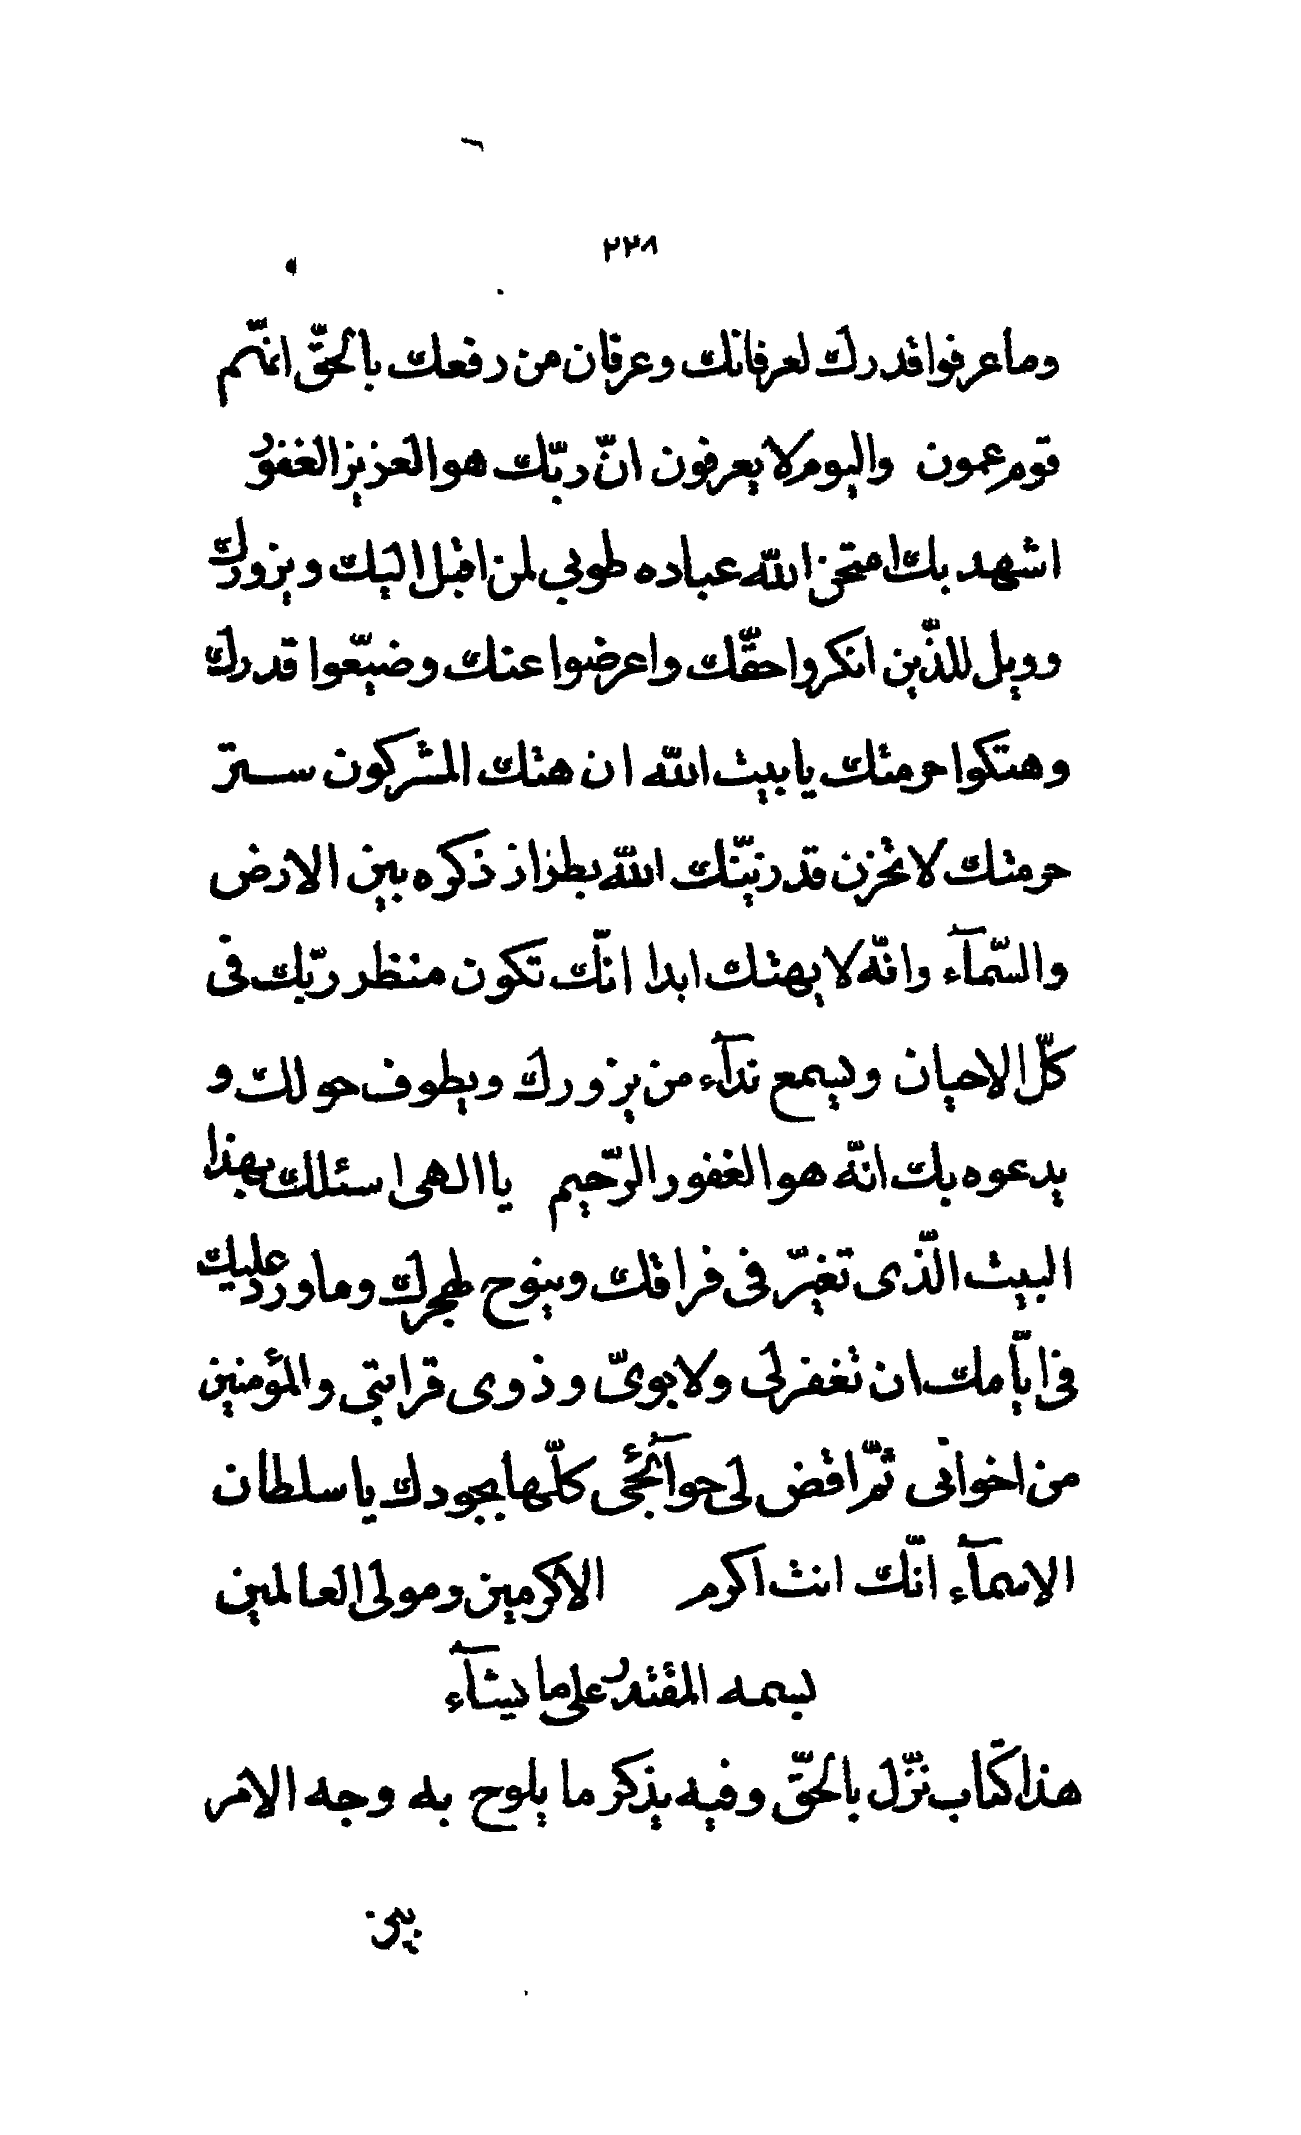 ٢٣٨
وما عرفوا قدرك لعرفانك وعرفان من رفعك بالحقّ انّهم
قوم عمون واليوم لا يعرفون انّ ربّك هو العزيز الغفور
اشهد بك امتحن اللّه عباده طوبى لمن اقبل اليك ويزورك
وويل للّذين انكروا حقّك واعرضوا عنك وضيّعوا قدرك
وهتكوا حرمتك يا بيت اللّه ان هتك المشركون ستر
حرمتك لا تحزن قد زيّنك اللّه بطراز ذكره بين الارض
والسّمآء وانّه لا يهتك ابدا انّك تكون منظر ربّك فى
كلّ الاحيان ويسمع ندآء من يزورك ويطوف حولك و
يدعوه بك انّه هو الغفور الرّحيم يا الهى اسئلك بهذا
البيت الّذى تغيّر فى فراقك وينوح لهجرك وما ورد عليك
فى ايّامك ان تغفر لى ولابوىّ وذوى قرابتى والمؤمنين
من اخوانى ثمّ اقض لى حوآئجى كلّها بجودك يا سلطان
الاسمآء انّك انت اكرم الاكرمين ومولى العالمين
بسمه المقتدر على ما يشآء
هذا كتاب نزّل بالحقّ وفيه يذكر ما يلوح به وجه الامر
بين